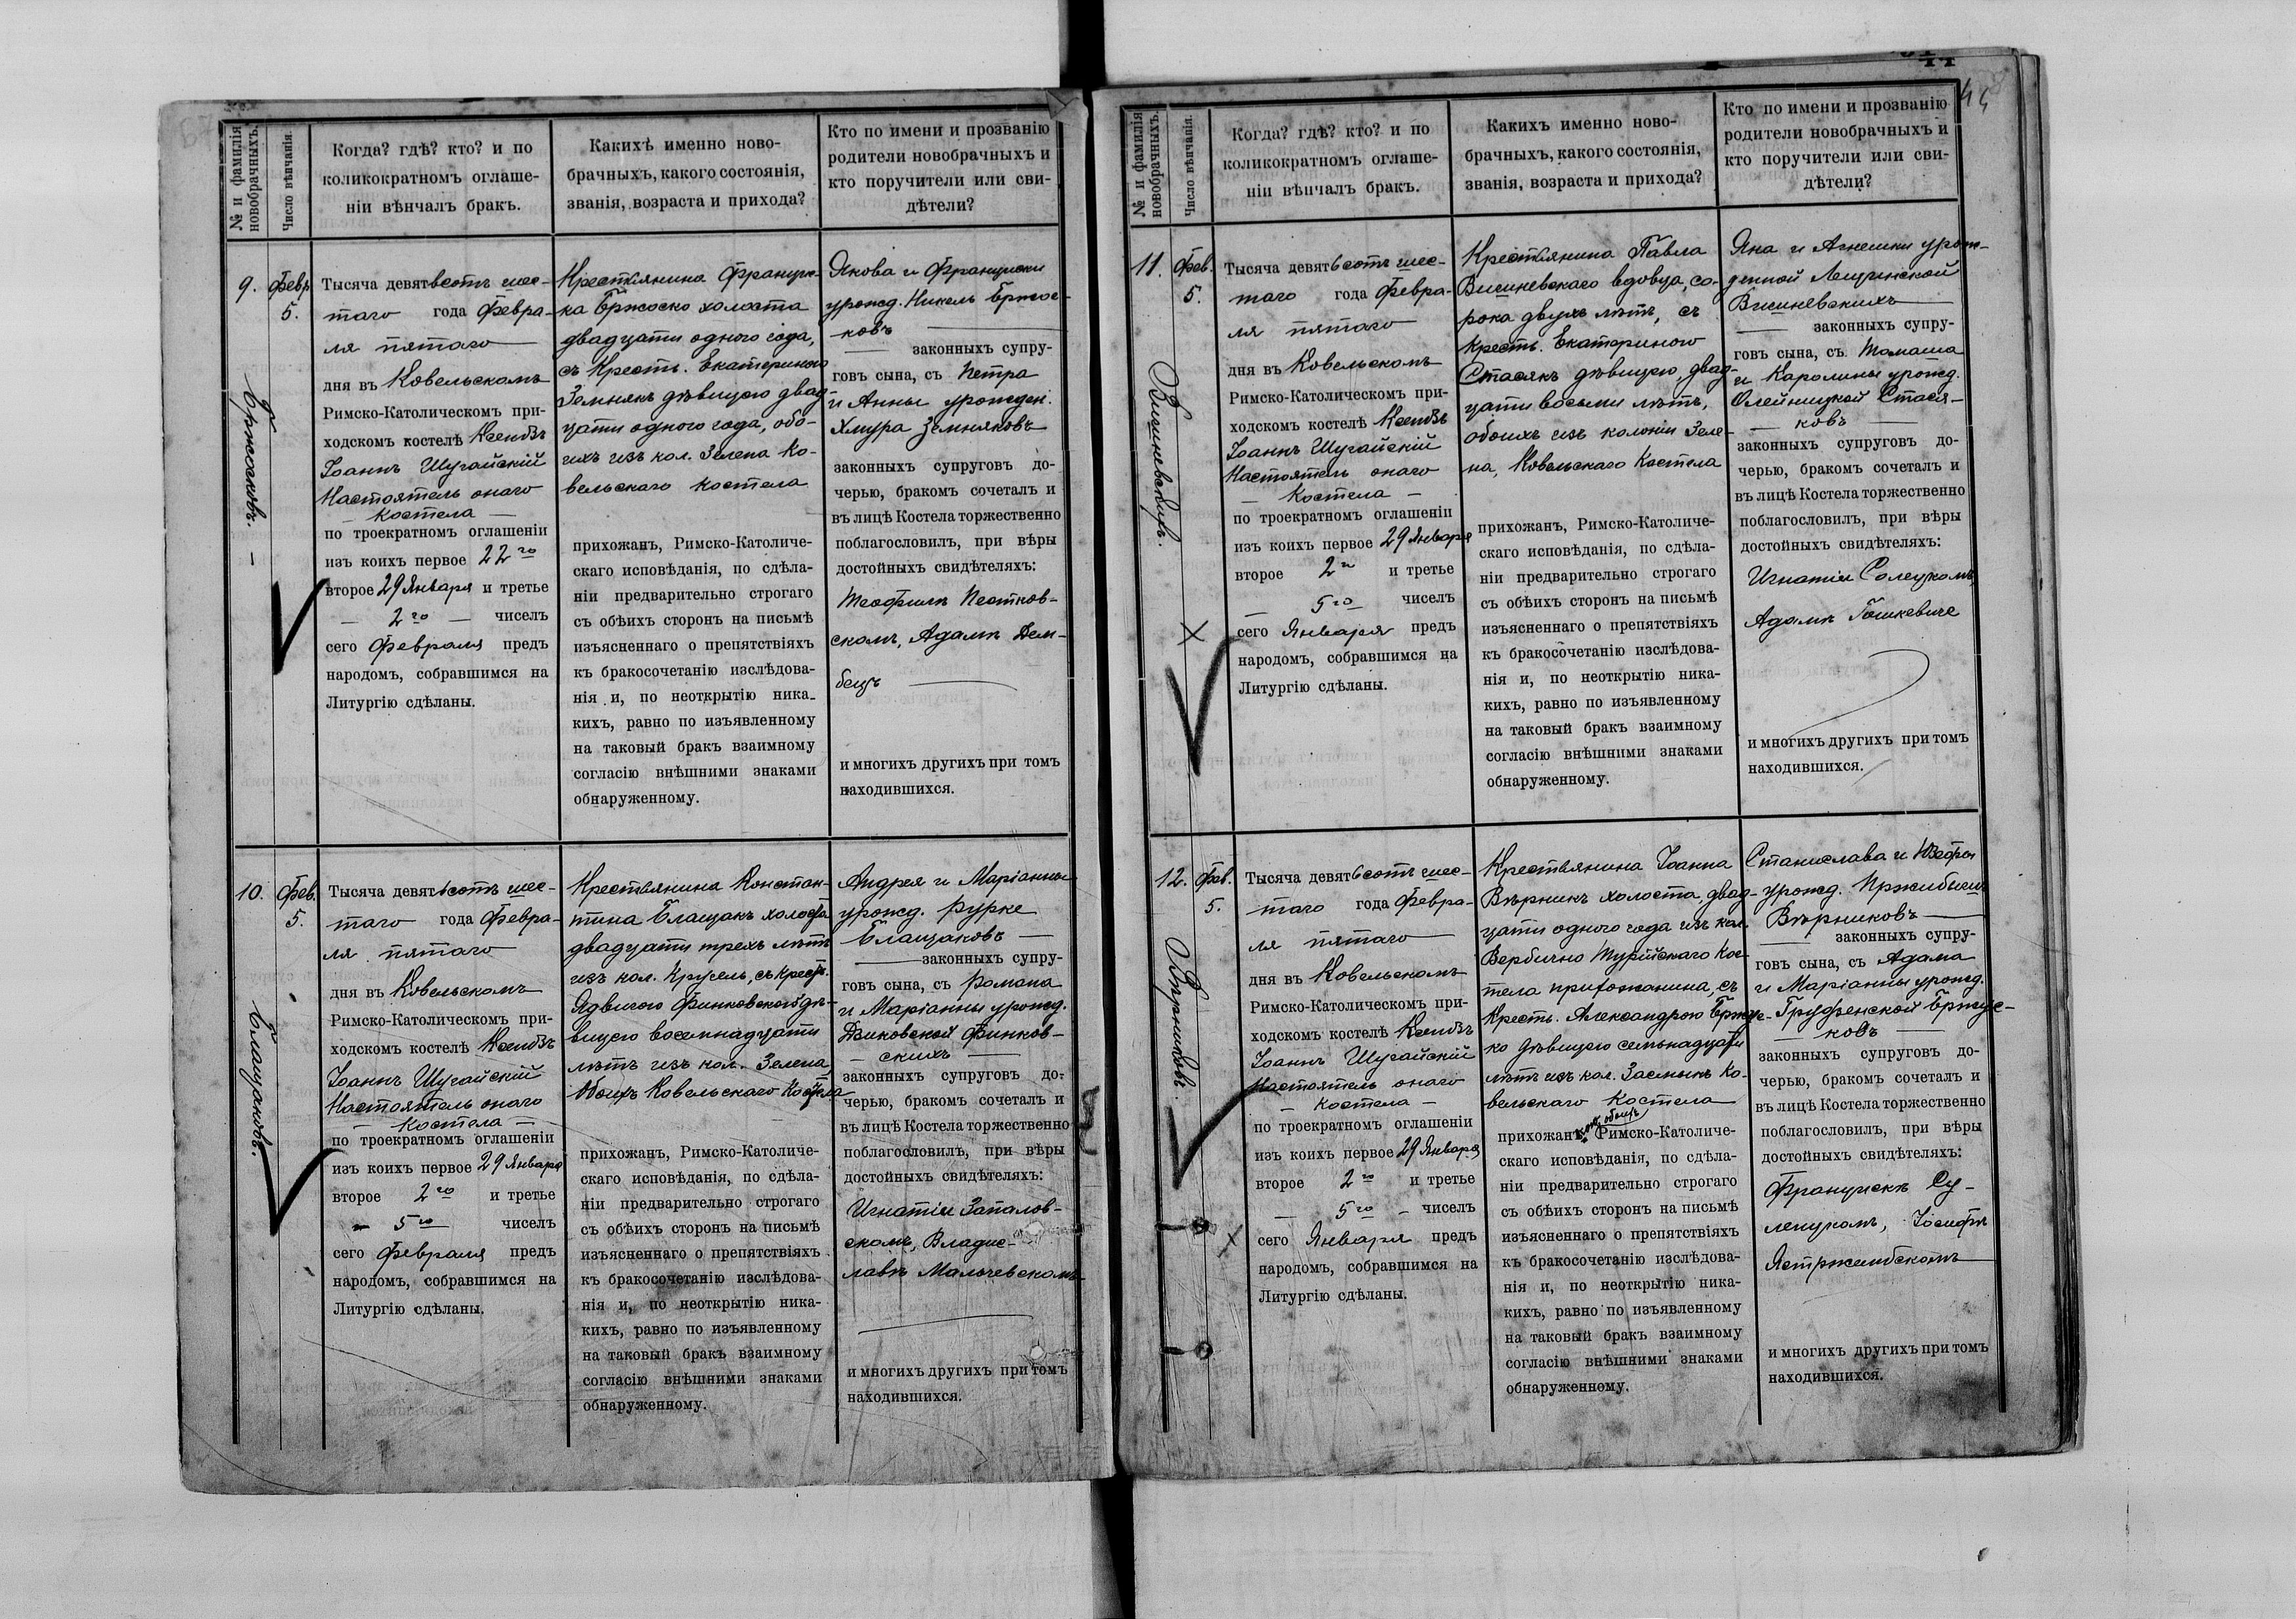 № и фамилія новобрачныхъ.
Число вѣнчанія.
Когда? гдѣ? кто? и по
коликократномъ оглаше-
ніи вѣнчалъ бракъ.
Какихъ именно ново-
брачныхъ, какого состоянія,
званія, возраста и прихода?
Кто по имени и прозванію
родители новобрачныхъ и
кто поручители или сви-
дѣтели?
9.
Бржосковъ.
Февр
5.
Тысяча девятьсотъ шес-
таго года Февра-
ля пятаго
дня въ Ковельскомъ
Римско-Католическомъ при-
ходскомъ костелѣ Ксендзъ
Іоаннъ Шугайскій
Настоятель онаго
Костела
по троекратномъ оглашеніи
изъ коихъ первое 22го
второе 29 Января и третье
2го чиселъ
сего Февраля предъ
народомъ, собравшимся на
Литургію сдѣланы.
Крестьянина Франциш-
ка Бржоско холоста
двадцати одного года,
съ Кресть. Екатериною
Земнякъ дѣвицею двад-
цати одного года, обо-
ихъ изъ кол. Зелена Ко-
вельскаго костела
прихожанъ, Римско-Католиче-
скаго исповѣданія, по сдѣла-
ніи предварительно строгаго
съ обѣихъ сторонъ на письмѣ
изъясненнаго о препятствіяхъ
къ бракосочетанію изслѣдова-
нія и, по неоткрытію ника-
кихъ, равно по изъявленному
на таковый бракъ взаимному
согласію внѣшними знаками
обнаруженному.
Якова и Франциски
урожд. Никель Бржос-
ковъ
законныхъ супру-
говъ сына, съ Петра
и Анны урожден.
Хмура Земняковъ
законныхъ супруговъ до-
черью, бракомъ сочеталъ и
въ лицѣ Костела торжественно
поблагословилъ, при вѣры
достойныхъ свидѣтеляхъ:
Теофилѣ Пентков-
скомъ, Адамѣ Дем-
бецъ
и многихъ другихъ при томъ
находившихся.
10.
Блащаковъ.
Фев.
5.
Тысяча девятьсотъ шес-
таго года Февра-
ля пятаго
дня въ Ковельскомъ
Римско-Католическомъ при-
ходскомъ костелѣ Ксендзъ
Іоаннъ Шугайскій
Настоятель онаго
Костела
по троекратномъ оглашеніи
изъ коихъ первое 29 Января
второе 2го и третье
5го чиселъ
сего Февраля предъ
народомъ, собравшимся на
Литургію сдѣланы.
Крестьянина Констан-
тина Блащакъ холоста
двадцати трехъ лѣтъ
изъ кол. Крусель, съ Крест.
Ядвигою Финковскою дѣ-
вицею восемнадцати
лѣтъ изъ кол. Зелена,
обоихъ Ковельскаго Костела
прихожанъ, Римско-Католиче-
скаго исповѣданія, по сдѣла-
ніи предварительно строгаго
съ обѣихъ сторонъ на письмѣ
изъясненнаго о препятствіяхъ
къ бракосочетанію изслѣдова-
нія и, по неоткрытію ника-
кихъ, равно по изъявленному
на таковый бракъ взаимному
согласію внѣшними знаками
обнаруженному.
Андрея и Маріанны
урожд. Рурке
Блащаковъ
законныхъ супру-
говъ сына, съ Романа
и Маріанны урожд.
Дзиковской Финков-
скихъ
законныхъ супруговъ до-
черью, бракомъ сочеталъ и
въ лицѣ Костела торжественно
поблагословилъ, при вѣры
достойныхъ свидѣтеляхъ:
Игнатіи Запалов-
скомъ, Владис-
лавѣ Мальчевскомъ
и многихъ другихъ при томъ
находившихся.
44
№ и фамилія новобрачныхъ.
Число вѣнчанія.
Когда? гдѣ? кто? и по
коликократномъ оглаше-
ніи вѣнчалъ бракъ.
Какихъ именно ново-
брачныхъ, какого состоянія,
званія, возраста и прихода?
Кто по имени и прозванію
родители новобрачныхъ и
кто поручители или сви-
дѣтели?
11.
Висиневскихъ.
Фев.
5.
Тысяча девятьсотъ шес-
таго года Февра-
ля пятаго
дня въ Ковельскомъ
Римско-Католическомъ при-
ходскомъ костелѣ Ксендзъ
Іоаннъ Шугайскій
Настоятель онаго
Костела
по троекратномъ оглашеніи
изъ коихъ первое 29 Января
второе 2го и третье
5го чиселъ
сего Января предъ
народомъ, собравшимся на
Литургію сдѣланы.
Крестьянина Павла
Висиневскаго вдовца, со-
рока двухъ лѣтъ, съ
Кресть. Екатериною
Стасякъ дѣвицею, двад-
цати восьми лѣтъ,
обоихъ изъ колоніи Зеле-
на, Ковельскаго Костела
прихожанъ, Римско-Католиче-
скаго исповѣданія, по сдѣла-
ніи предварительно строгаго
съ обѣихъ сторонъ на письмѣ
изъясненнаго о препятствіяхъ
къ бракосочетанію изслѣдова-
нія и, по неоткрытію ника-
кихъ, равно по изъявленному
на таковый бракъ взаимному
согласію внѣшними знаками
обнаруженному.
Яна и Агнешки урож-
денной Лещинской
Висиневскихъ
законныхъ супру-
говъ сына, съ Томаша
и Каролины урожд.
Олейницкой Стася-
ковъ
законныхъ супруговъ до-
черью, бракомъ сочеталъ и
въ лицѣ Костела торжественно
поблагословилъ, при вѣры
достойныхъ свидѣтеляхъ:
Игнатіи Солецкомъ,
Адамѣ Гошкевиче
и многихъ другихъ при томъ
находившихся.
12.
Вѣрниковъ.
Фев.
5.
Тысяча девятьсотъ шес-
таго года Февра-
ля пятаго
дня въ Ковельскомъ
Римско-Католическомъ при-
ходскомъ костелѣ Ксендзъ
Іоаннъ Шугайскій
Настоятель онаго
Костела
по троекратномъ оглашеніи
изъ коихъ первое 29 Января
второе 2го и третье
5го чиселъ
сего Января предъ
народомъ, собравшимся на
Литургію сдѣланы.
Крестьянина Іоанна
Вѣрникъ холоста, двад-
цати одного года изъ кол.
Вербично Турійскаго Кос-
тела прихожанина, съ
Кресть. Александрою Бржус-
ко дѣвицею семьнадцати
лѣтъ изъ кол. Засмыкъ Ко-
вельскаго Костела
прихожанъ, Римско-Католиче-
скаго исповѣданія, по сдѣла-
ніи предварительно строгаго
съ обѣихъ сторонъ на письмѣ
изъясненнаго о препятствіяхъ
къ бракосочетанію изслѣдова-
нія и, по неоткрытію ника-
кихъ, равно по изъявленному
на таковый бракъ взаимному
согласію внѣшними знаками
обнаруженному.
Станислава и Юзефы
урожд. Пржибыш
Вѣрниковъ
законныхъ супру-
говъ сына, съ Адама
и Маріанны урожд.
Груфенской Бржус-
ковъ
законныхъ супруговъ до-
черью, бракомъ сочеталъ и
въ лицѣ Костела торжественно
поблагословилъ, при вѣры
достойныхъ свидѣтеляхъ:
Францискѣ Су-
лецкомъ, Іосифѣ
Ястржембскомъ
и многихъ другихъ при томъ
находившихся.